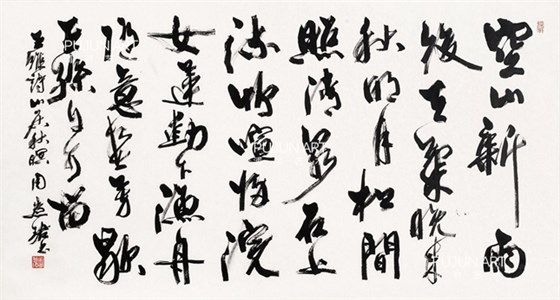 空山新雨
後天氣晚來
秋明月松間
照清泉石上
流竹喧归浣
女蓮動下漁舟
隨意春芳歇
王孫自可留
王維詩山居秋暝 周慧珺書